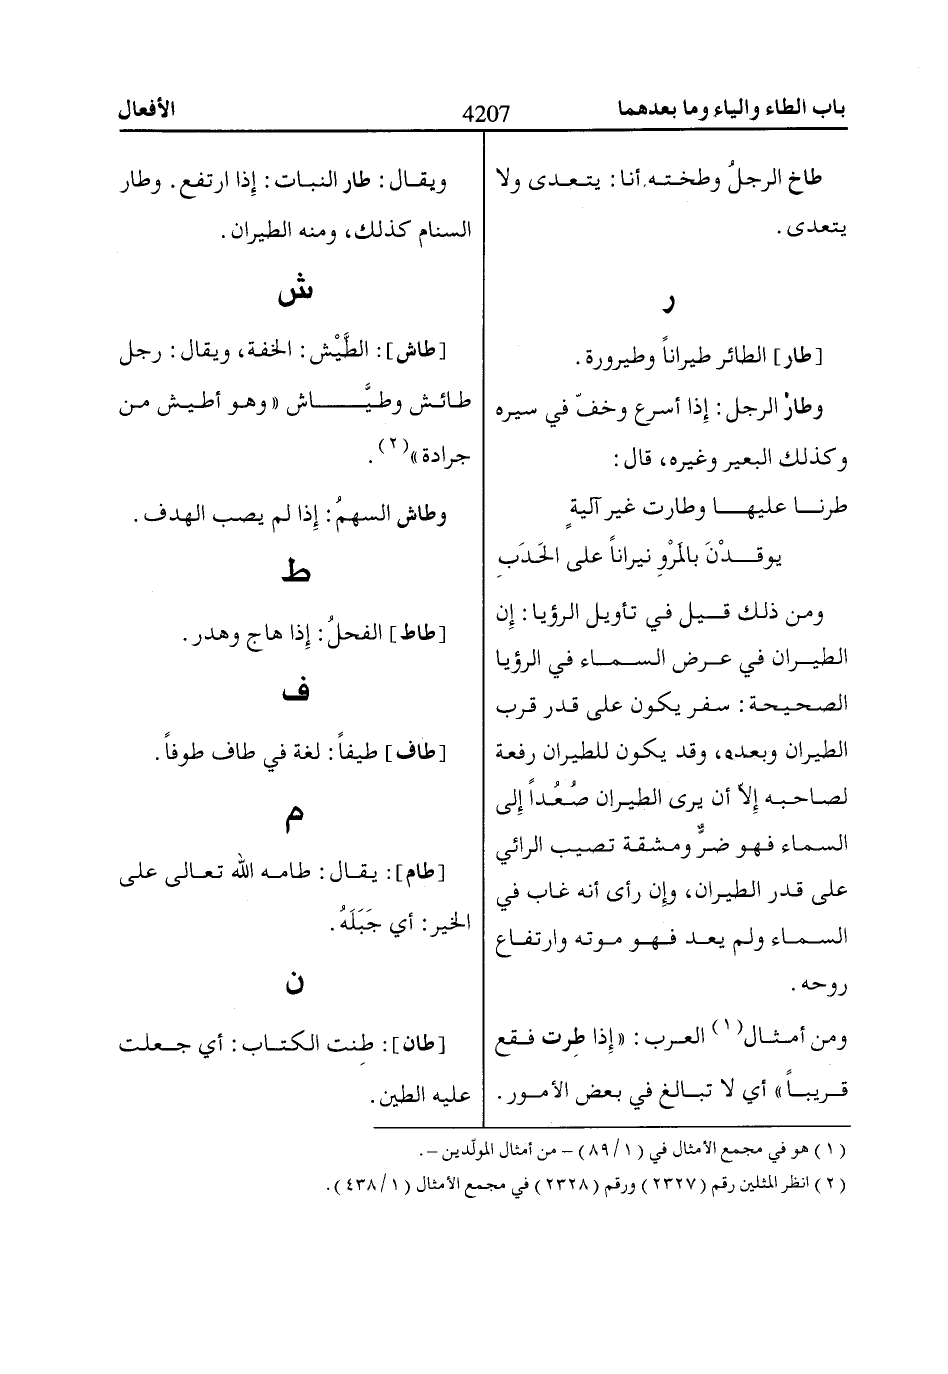 باب الطاء والياء وما بعدهما 4207 الأفعال
طاخ الرجلُ وطخته أنا: يتعدى ولا
يتعدى.
ر
[طار] الطائر طيراناً وطيرورة.
وطارُ الرجل: إذا أسرع وخفّ في سيره
وكذلك البعير وغيره، قال:
طرنا عليها وطارت غير آليةٍ
يوقدْنَ بالمَرْوِ نيراناً على الحَدَبِ
ومن ذلك قيل في تأويل الرؤيا: إن
الطيران في عرض السماء في الرؤيا
الصحيحة: سفر يكون على قدر قرب
الطيران وبعده، وقد يكون للطيران رفعة
لصاحبه إلاّ أن يرى الطيران صُعُداً إلى
السماء فهو ضرٌّ ومشقة تصيب الرائي
على قدر الطيران، وإن رأى أنه غاب في
السماء ولم يعد فهو موته وارتفاع
روحه.
ومن أمثال(١) العرب: «إذا طِرت فقع
قريباً» أي لا تبالغ في بعض الأمور.
ويقال: طار النبات: إذا ارتفع. وطار
السنام كذلك، ومنه الطيران.
ش
[طاش]: الطَّيْش: الخفة، ويقال: رجل
طائش وطيَّاش «وهو أطيش من
جرادة»(٢).
وطاش السهمُ: إذا لم يصب الهدف.
ط
[طاط] الفحلُ: إذا هاج وهدر.
ف
[طاف] طيفاً: لغة في طاف طوفاً.
م
[طام]: يقال: طامه الله تعالى على
الخير: أي جَبَلَهُ.
ن
[طان]: طِنت الكتاب: أي جعلت
عليه الطين.
(١) هو في مجمع الأمثال في (١/ ٨٩) – من أمثال المولّدين –.
(٢) انظر المثلين رقم (٢٣٢٧) ورقم (٢٣٢٨) في مجمع الأمثال (١/ ٤٣٨).